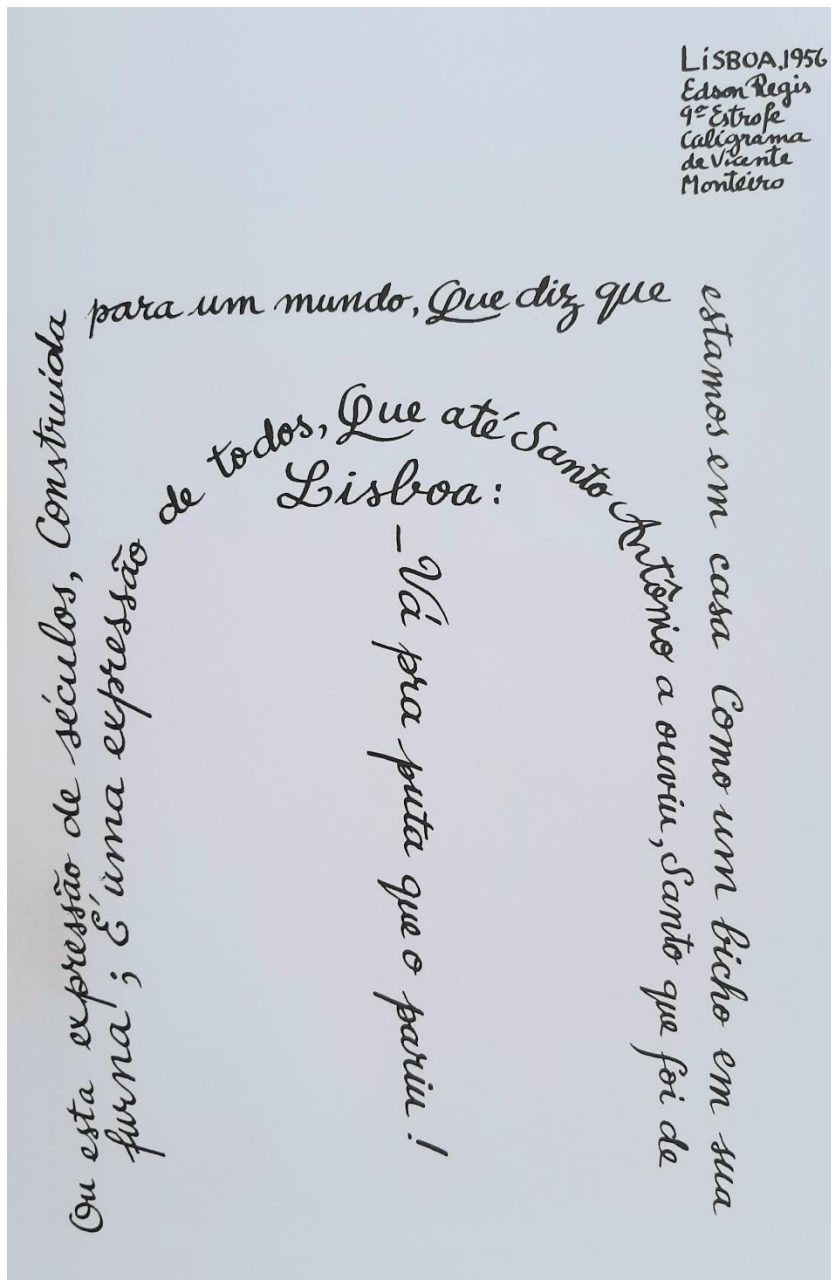 LISBOA, 1956
Edson Regis
9ª Estrofe
Caligrama
de Vicente
Monteiro
Ou esta expressão de séculos, Construída
para um mundo, Que diz que
estamos em casa Como um bicho em sua
furna; É uma expressão
de todos, Que até Santo Antônio a ouviu, Santo que foi de
Lisboa:
_Vá pra puta que o pariu!